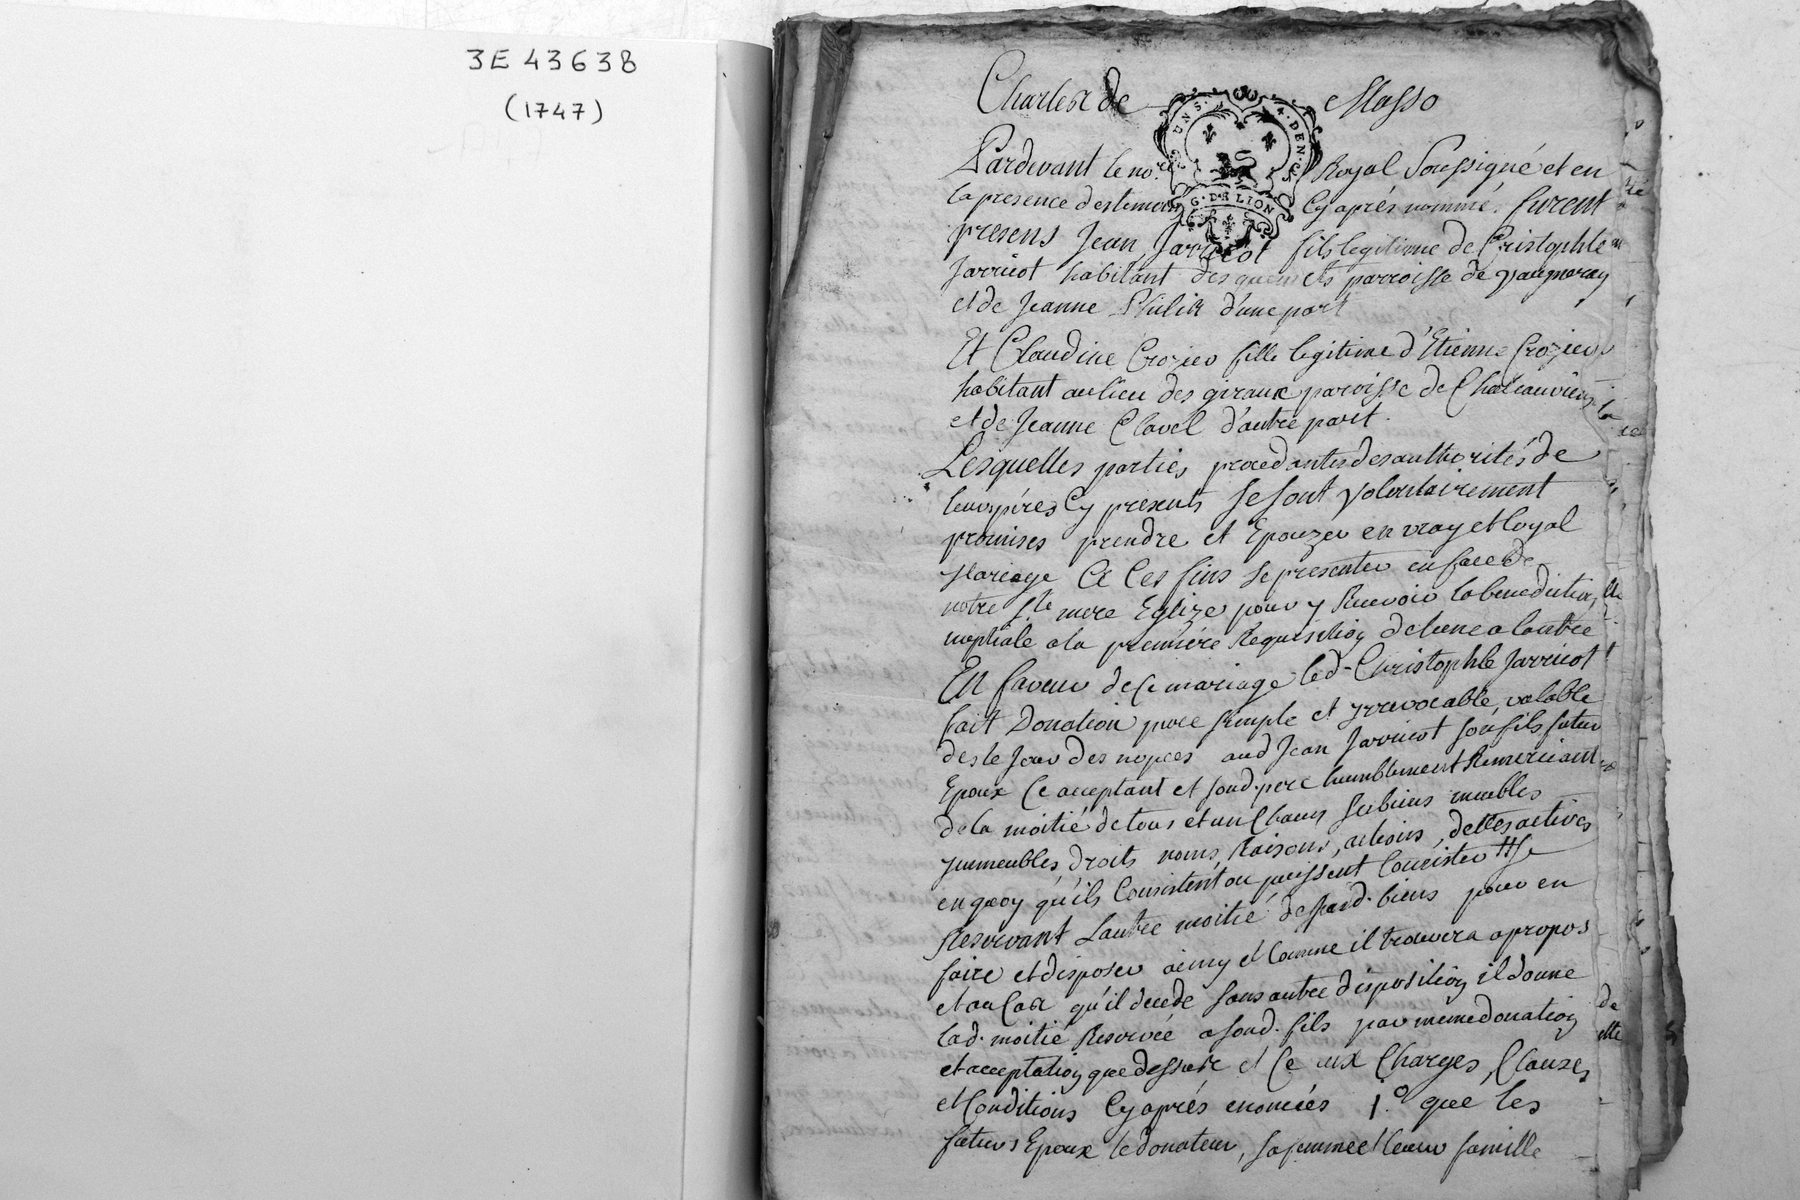 3E 43638
(1747)
Charles de Masso
UN S. 4 DEN.rs
G. DE LION
Pardevant le no.re Royal Soussigné et en
la presence des temoins Cy aprés nommé. furent
presens Jean Jarricot fils legitime de Cristophle
Jarricot habitant des parroisse de Vaugneray
et de Jeanne Philix d'une part
Et Claudine Crozier fille legitime d'Etienne Crozier
habitant au lieu des giraux paroisse de Chateauvieux
et de Jeanne Clavel d'autre part.
Lesquelles parties procedantes des authorités de
leurs péres Cy presents se sont volontairement
promises prendre et Epouzer en vray et loyal
Mariage a Ces fins se presenter en face de
notre Ste mere Eglize pour y Recevoir la benediction
nuptiale a la premiére Requisition de lune a lautre
En faveur de Ce mariage led. Christophle Jarricot
fait Donation pure simple et yrrevocable, valable
des le Jour des nopces aud Jean Jarricot son fils futur
Epoux Ce acceptant et sond. pere humblement Remerciant
de la moitié de tous et un Chacun ses biens meubles
ymmeubles, droits noms, Raisons, actions, dettes actives
en quoy qu'ils Consistent ou puissent Concister Se
Reservant Lautre moitié de sesd. biens pour en
faire et disposer ainsy et Comme il trouvera a propos
et au Cas qu'il decede sans autre disposition il donne
lad. moitié Reservée a sond. fils par meme donation
et acceptation que dessus et Ce aux Charges, Clauses
et Conditions Cy aprés enoncées 1.o que les
futurs Epoux le donateur, sa femme et leur famille